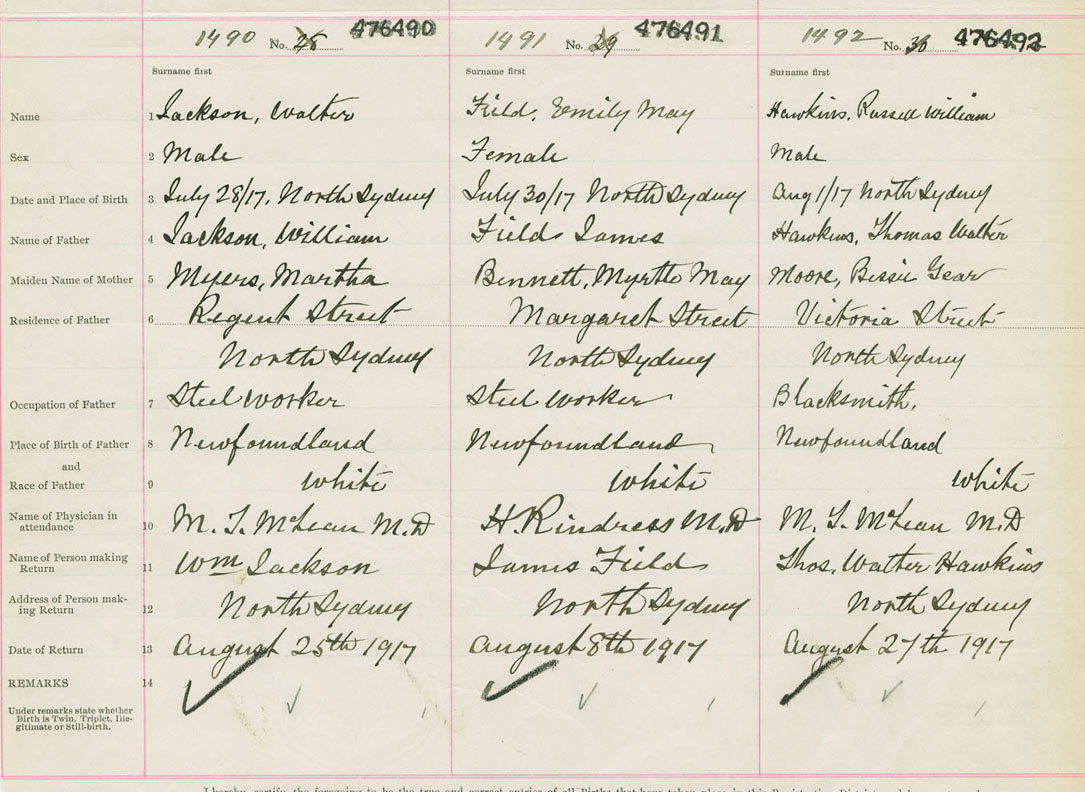 1490 No. 28 476490 1491 No. 29 476491 1492 No. 30 476492
Surname first Surname first Surname first
Name 1 Jackson, Walter Field, Emily May Hawkins, Russell William
Sex 2 Male Female Male
Date and Place of Birth 3 July 28/17, North Sydney July 30/17 North Sydney Aug 1/17 North Sydney
Name of Father 4 Jackson, William Field James Hawkins, Thomas Walter
Maiden Name of Mother 5 Myers, Martha Bennett, Myrtle May Moore, Bessie Gear
Residence of Father 6 Regent Street Margaret Street Victoria Street
North Sydney North Sydney North Sydney
Occupation of Father 7 Steel worker Steel worker Blacksmith,
Place of Birth of Father 8 Newfoundland Newfoundland Newfoundland
and
Race of Father 9 white white white
Name of Physician in
attendance 10 M. T. McLean M.D H. Rindress M.D M. T. McLean M.D
Name of Person making
Return 11 Wm Jackson James Field Thos. Walter Hawkins
Address of Person mak-
ing Return 12 North Sydney North Sydney North Sydney
Date of Return 13 August 25th 1917 August 8th 1917 August 27th 1917
REMARKS 14
Under remarks state whether
Birth is Twin, Triplet, Ille-
gitimate or Still-birth.
I hereby certify the foregoing to be the true and correct entries of all Births that have taken place in this Registration District